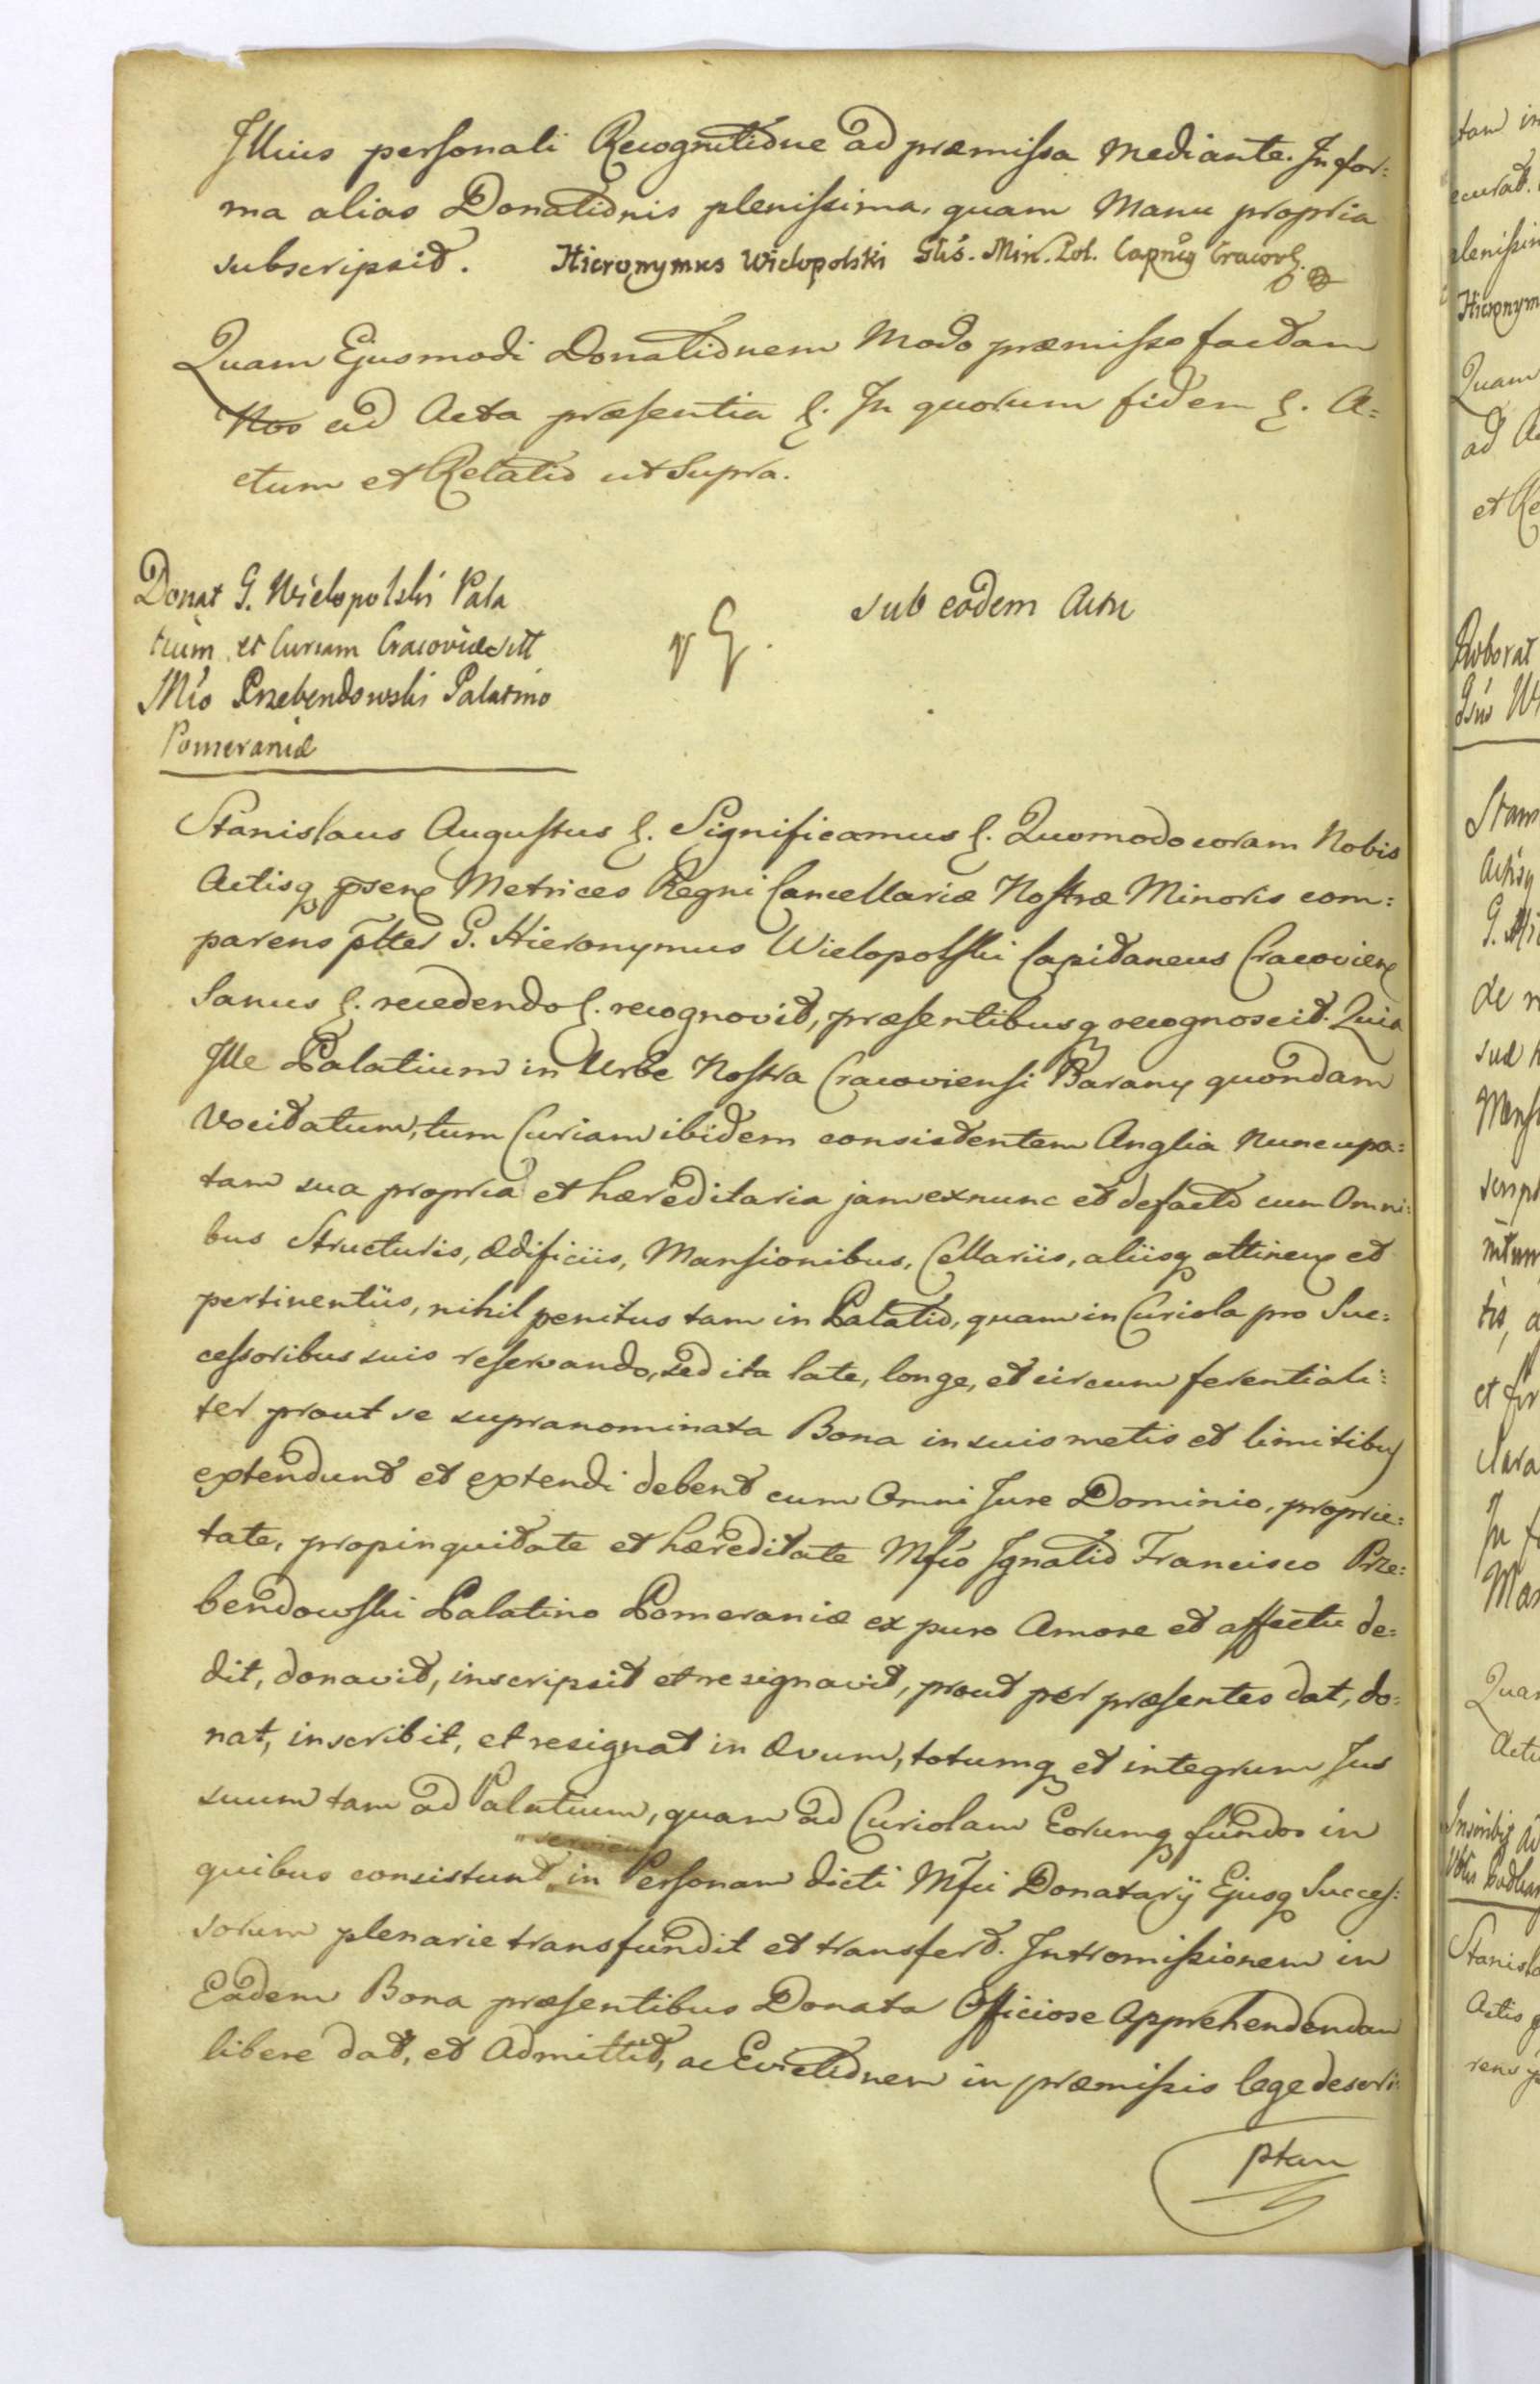 Illius personali Recognitione ad præmissa mediante. In for:
ma alias Donationis plenissima, quam Manu propria
subscripsit. Hieronymus Wielopolski Glis. Min. Pol. Capnus Cracov.
Quam Ejusmodi Donationem Modo præmisso factam
Nos ad Acta præsentia &. In quorum fidem &. A:
ctum et Relatio ut Supra.
Donat G. Wielopolski Pala
tium et Curiam Cracoviæ sitt
Mfo Przebendowski Palatino
Pomeraniæ
sub eodem Actu
Stanislaus Augustus &. Significamus &. Quomodo coram Nobis
Actisq præsen Metrices Regni Cancellariæ Nostræ Minoris com:
parens pltter G. Hieronymus Wielopolski Capitaneus Cracovien
Sanus &. recedendo &. recognovit, præsentibusq recognoscit. Quia
Ille Palatium in Urbe Nostra Cracoviensi Barany quondam
Vocitatum, tum Curiam ibidem consistentem Anglia Nuncupa:
tam sua propria et hæreditaria jam exnunc et defacto cum Omni:
bus Structuris, Ædificiis, Mansionibus, Cellariis, aliisq attinen et
pertinentiis, nihil penitus tam in Palatio, quam in Curiola pro Suc:
cessoribus suis reservando, sed ita late, longe, et circum ferentiali:
ter prout se supranominata Bona in suis metis et limitibus
extendunt et extendi debent cum Omni Jure Dominio, proprie:
tate, propinquitate et hæreditate Mfco Ignatio Francisco Prze:
bendowski Palatino Pomeraniæ ex puro Amore et affectu de:
dit, donavit, inscripsit et resignavit, prout per præsentes dat, do:
nat, inscribit, et resignat in Ævum, totumq et integrum Jus
suum tam ad Palatium, quam ad Curiolam Eorumq fundos in
quibus consistunt servien in Personam dicti Mfci Donatarij Ejusq Succes:
sorum plenarie transfundit et transfert. Intromissionem in
Eadem Bona præsentibus Donata Officiose Apprehendendam
libere dat, et Admittit, ac Evictionem in præmissis lege descri:
ptam